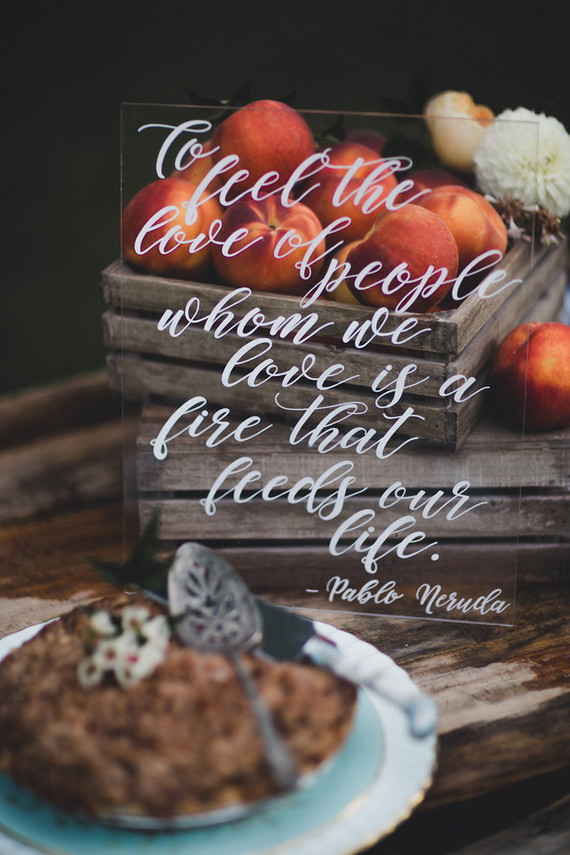 To
feel the
love of people
whom we
love is a
fire that
feeds our
life.
- Pablo Neruda